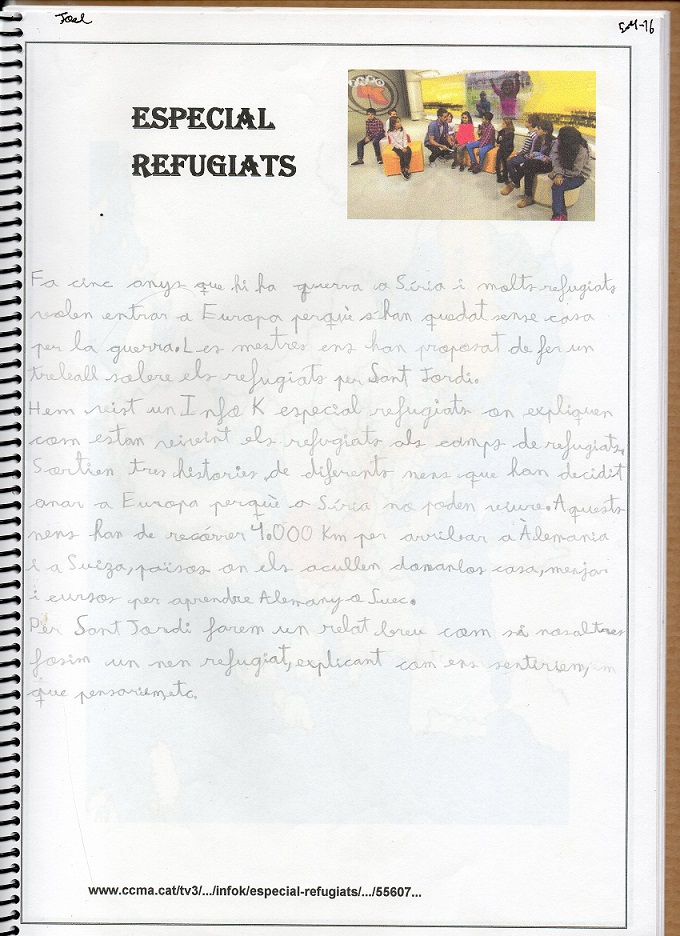 Joel
5M-16
ESPECIAL
REFUGIATS
INFO
K
Fa cinc anys que hi ha guerra a Síria i molts refugiats
volen entrar a Europa perquè s'han quedat sense casa
per la guerra. Les mestres ens han proposat de fer un
treball sobre els refugiats per Sant Jordi.
Hem vist un Info K especial refugiats on expliquen
com estan vivint els refugiats als camps de refugiats.
Sortien tres histories de diferents nens que han decidit
anar a Europa perquè a Síria no poden viure. Aquests
nens han de recórrer 4.000 Km per arribar a Àlemania
i a Suiza, països on els acullen donanlos casa, menjar
i cursos per aprendre Alemany o Suec.
Per Sant Jordi farem un relat breu com si nosaltres
fosim un nen refugiat, explicant com ens sentiriem,
que pensariem, etc.
www.ccma.cat/tv3/.../infok/especial-refugiats/.../55607...